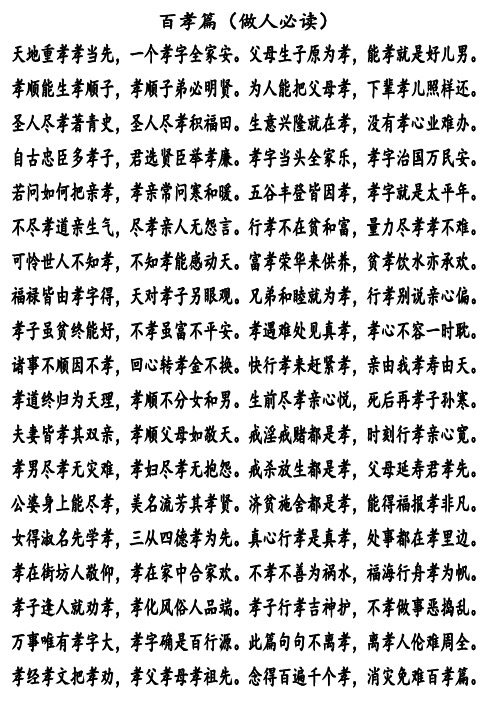 百孝篇（做人必读）
天地重孝孝当先，一个孝字全家安。父母生子原为孝，能孝就是好儿男。
孝顺能生孝顺子，孝顺子弟必明贤。为人能把父母孝，下辈孝儿照样还。
圣人尽孝著青史，圣人尽孝积福田。生意兴隆就在孝，没有孝心业难办。
自古忠臣多孝子，君选贤臣举孝廉。孝字当头全家乐，孝字治国万民安。
若问如何把亲孝，孝亲常问寒和暖。五谷丰登皆因孝，孝字就是太平年。
不尽孝道亲生气，尽孝亲人无怨言。行孝不在贫和富，量力尽孝孝不难。
可怜世人不知孝，不知孝能感动天。富孝荣华来供养，贫孝饮水亦承欢。
福禄皆由孝字得，天对孝子另眼观。兄弟和睦就为孝，行孝别说亲心偏。
孝子虽贫终能好，不孝虽富不平安。孝遇难处见真孝，孝心不容一时耽。
诸事不顺因不孝，回心转孝金不换。快行孝来赶紧孝，亲由我孝寿由天。
孝道终归为天理，孝顺不分女和男。生前尽孝亲心悦，死后再孝子孙寒。
夫妻皆孝其双亲，孝顺父母如敬天。戒淫戒赌都是孝，时刻行孝亲心宽。
孝男尽孝无灾难，孝妇尽孝无抱怨。戒杀放生都是孝，父母延寿君孝先。
公婆身上能尽孝，美名流芳其孝贤。济贫施舍都是孝，能得福报孝非凡。
女得淑名先学孝，三从四德孝为先。真心行孝是真孝，处事都在孝里边。
孝在街坊人敬仰，孝在家中合家欢。不孝不善为祸水，福海行舟孝为帆。
孝子逢人就劝孝，孝化风俗人品端。孝子行孝吉神护，不孝做事恶捣乱。
万事唯有孝字大，孝字确是百行源。此篇句句不离孝，离孝人伦难周全。
孝经孝文把孝劝，孝父孝母孝祖先。念得百遍千个孝，消灾免难百孝篇。